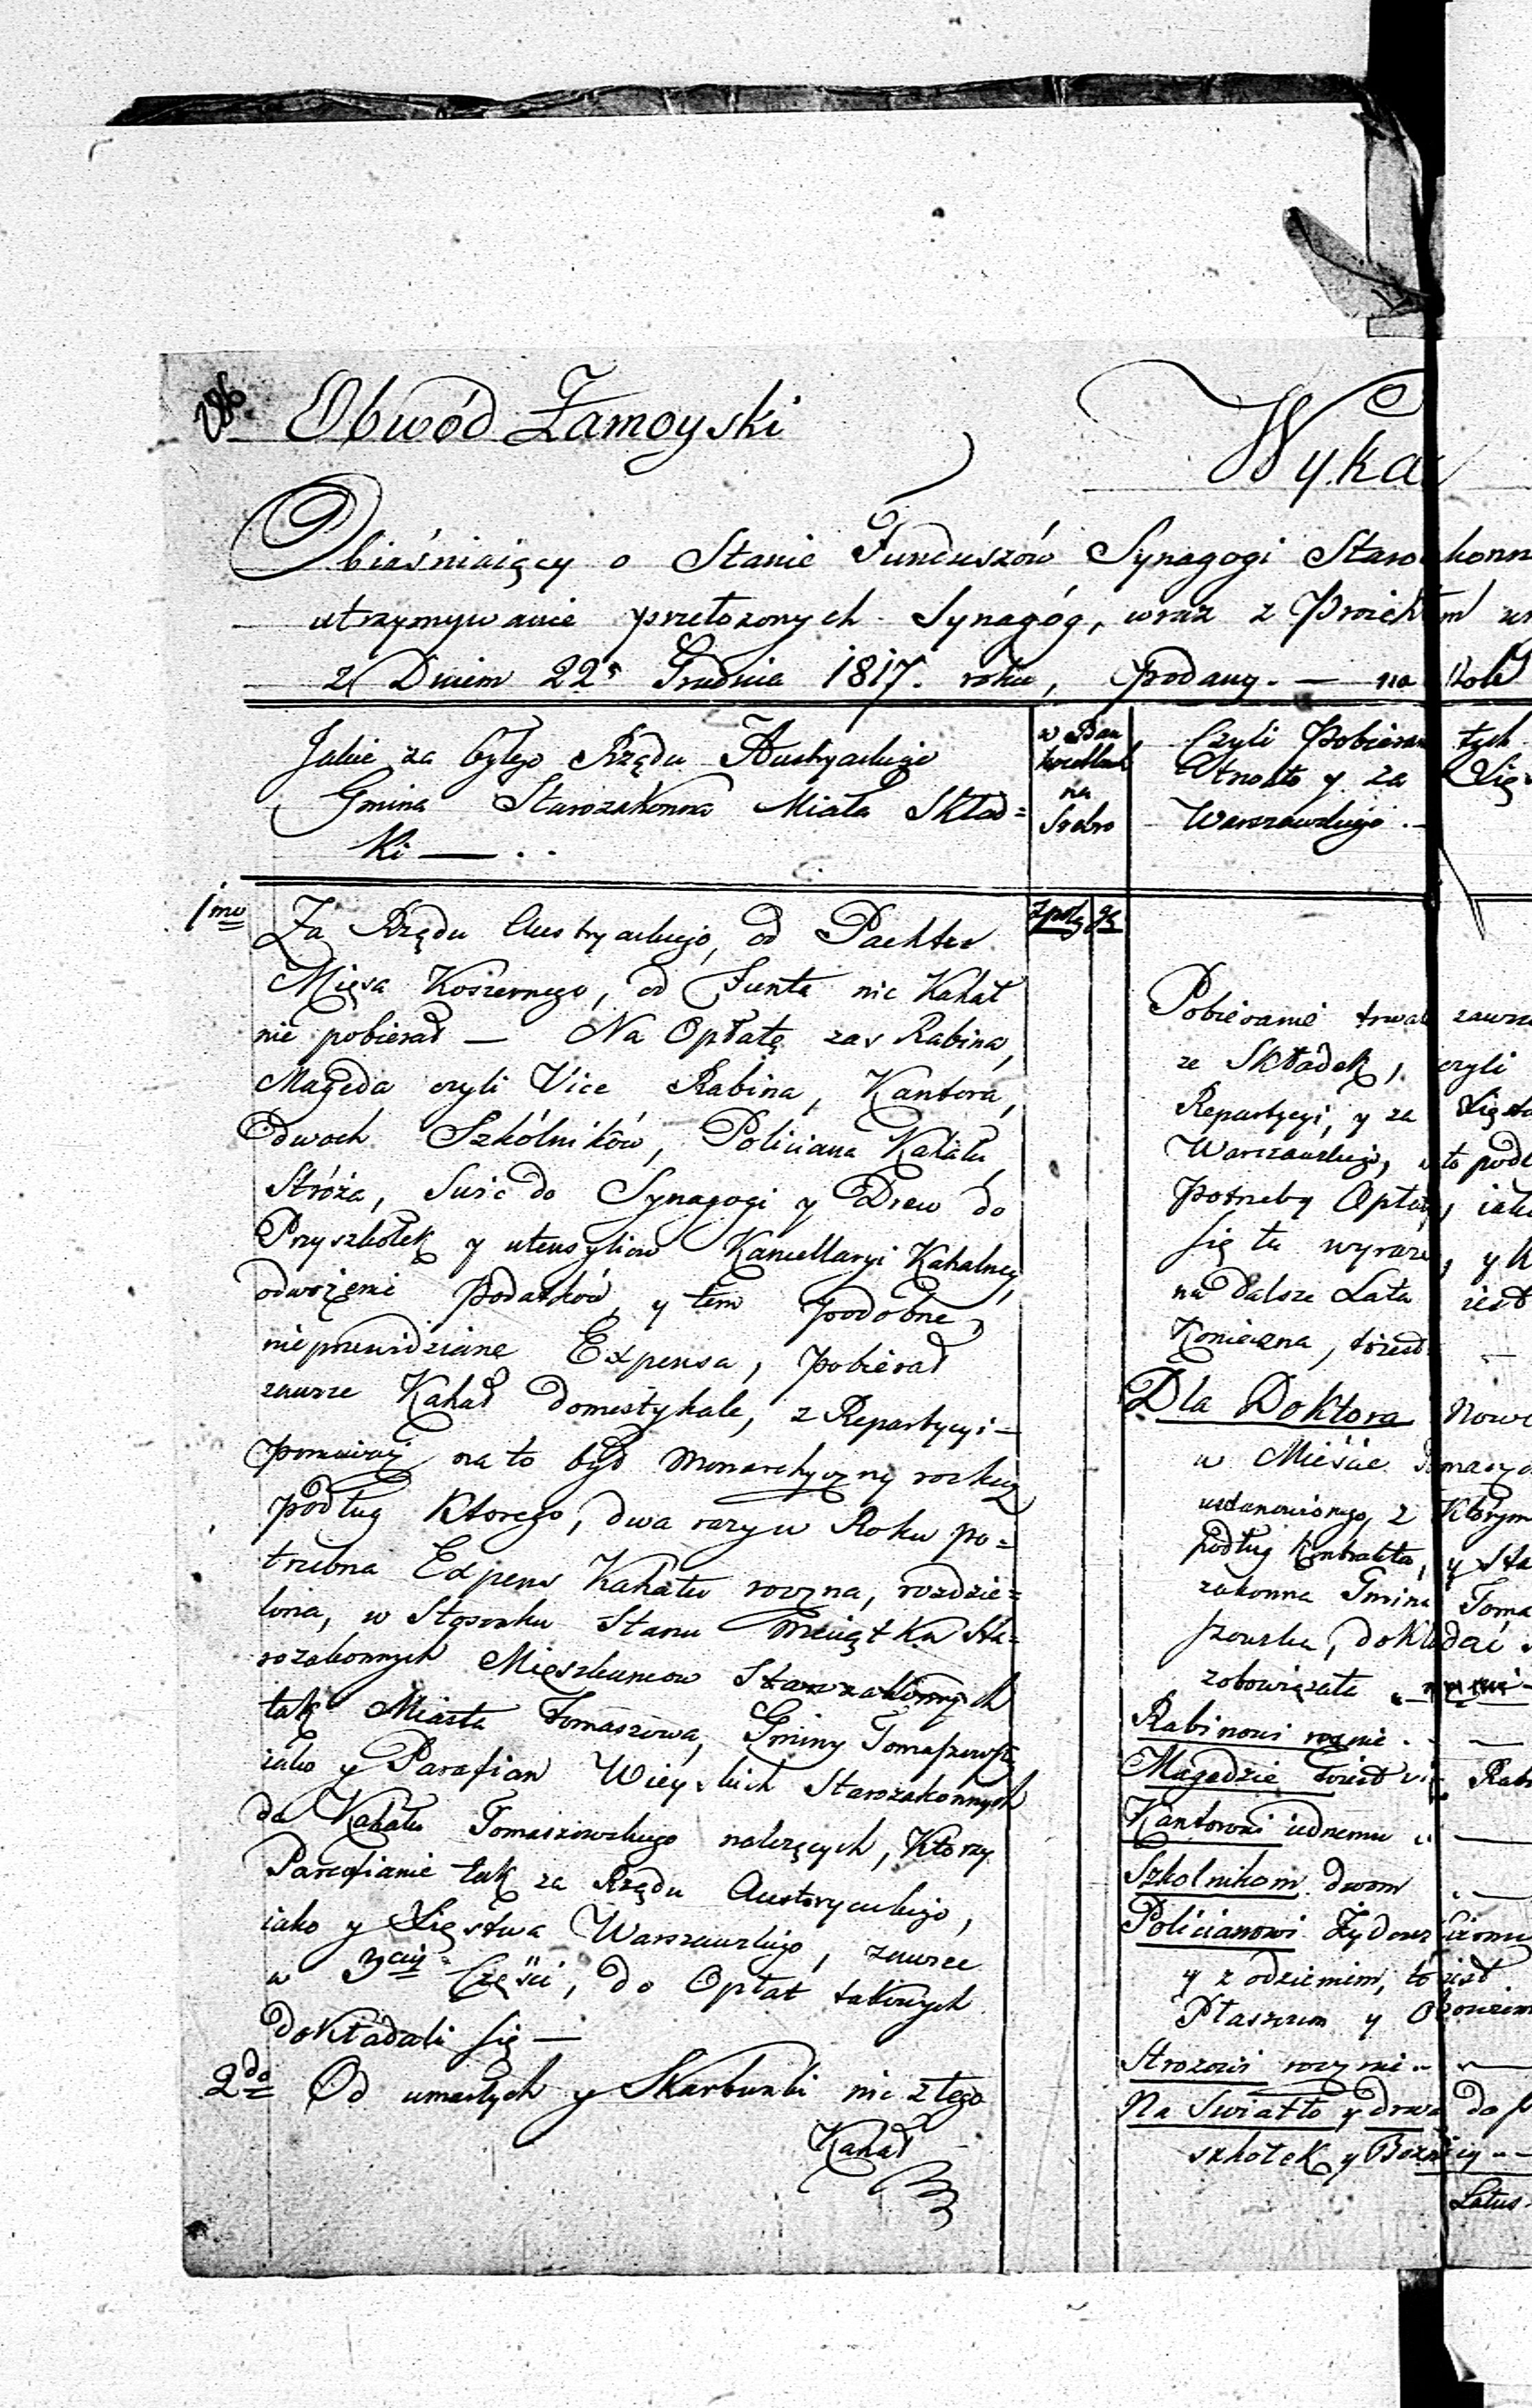 286.
Obwód Zamoyski
Wyka
Obiaśniaiący o Stanie Funduszów Synagogi Staro konn
utrzymywanie przełożonych Synagóg, wraz z Proiektem
z Dniem 22º Grudnia 1817. roku, Podany. — na Rok
Jakie za byłego Rządu Austryackiego
Gmina Starozakonna Miała Skład=
ki — . .
na
Srebro
Czyli Pobieran tych
trwało y za Xię
Warszawskiego . —
zpolg gr
1mo Za Rządu Austryackiego, od Pachtu
Mięsa Koszernego, od Funta nic Kahał
nie pobierał — Na Opłatę zas Rabina,
Mageda czyli Vice Rabina, Kantora,
Dwoch Szkólników, Policiana Kahału,
Stróża, Swic do Synagogi y Drew do
Przyszkołek y utensyliow Kancellaryi Kahalney,
odwożeni Podatków, y tem podobne,
nieprzewidziane Expensa, pobierał
zawsze Kahał domestykale, z Repartycyi —
ponieważ na to był Monarchyczny rozkaz
podług Ktorego, dwa razy w Roku po=
trzebna Expens Kahału roczna, rozdzie=
lona, w Stosonku Stanu Maiątku Sta=
rozakonnych Mieszkancow Starozakonnych
tak Miasta Tomaszowa, Gminy Tomaszewsk
iako y Parafian Wieyskich Starozakonnych
do Kahału Tomaszowskiego należących, Ktorzy
Parafianie tak za Rządu Austryackiego,
iako y Xięstwa Warszawskiego, zawsze
w 3ciey Części, do Opłat takowych
dokładali się —
2do Od umarłych y Skarbunki nic z tego
Kahał
Pobieranie trwał zawsz
ze Składek, czyli
Repartycyi, y za Xięst
Warszawskiego, a to podł
potrzeby Opłaty, iak
się tu wyraża, y
na dalsze Lata iest
Konieczna, toiest —
Dla Doktora Nowo
w Mieście Tomaszo
ustanowionego, z Którym
podług Kontraktu, y Sta
zakonna Gmina Toma
szowska, dokładać
zobowiązała
Rabinowi rocznie . —
Magedzie toiest vi Rab
Kantorowi iednemu —
Szkolnikom dwom . —
Policianowi Żydows kiemu
y z odzieniem, to iest
Płaszczem y Obowiem
Strozowi rocznie . . —
Na Swiatło y drwa do p
szkołek y Bożnicy . —
Latus